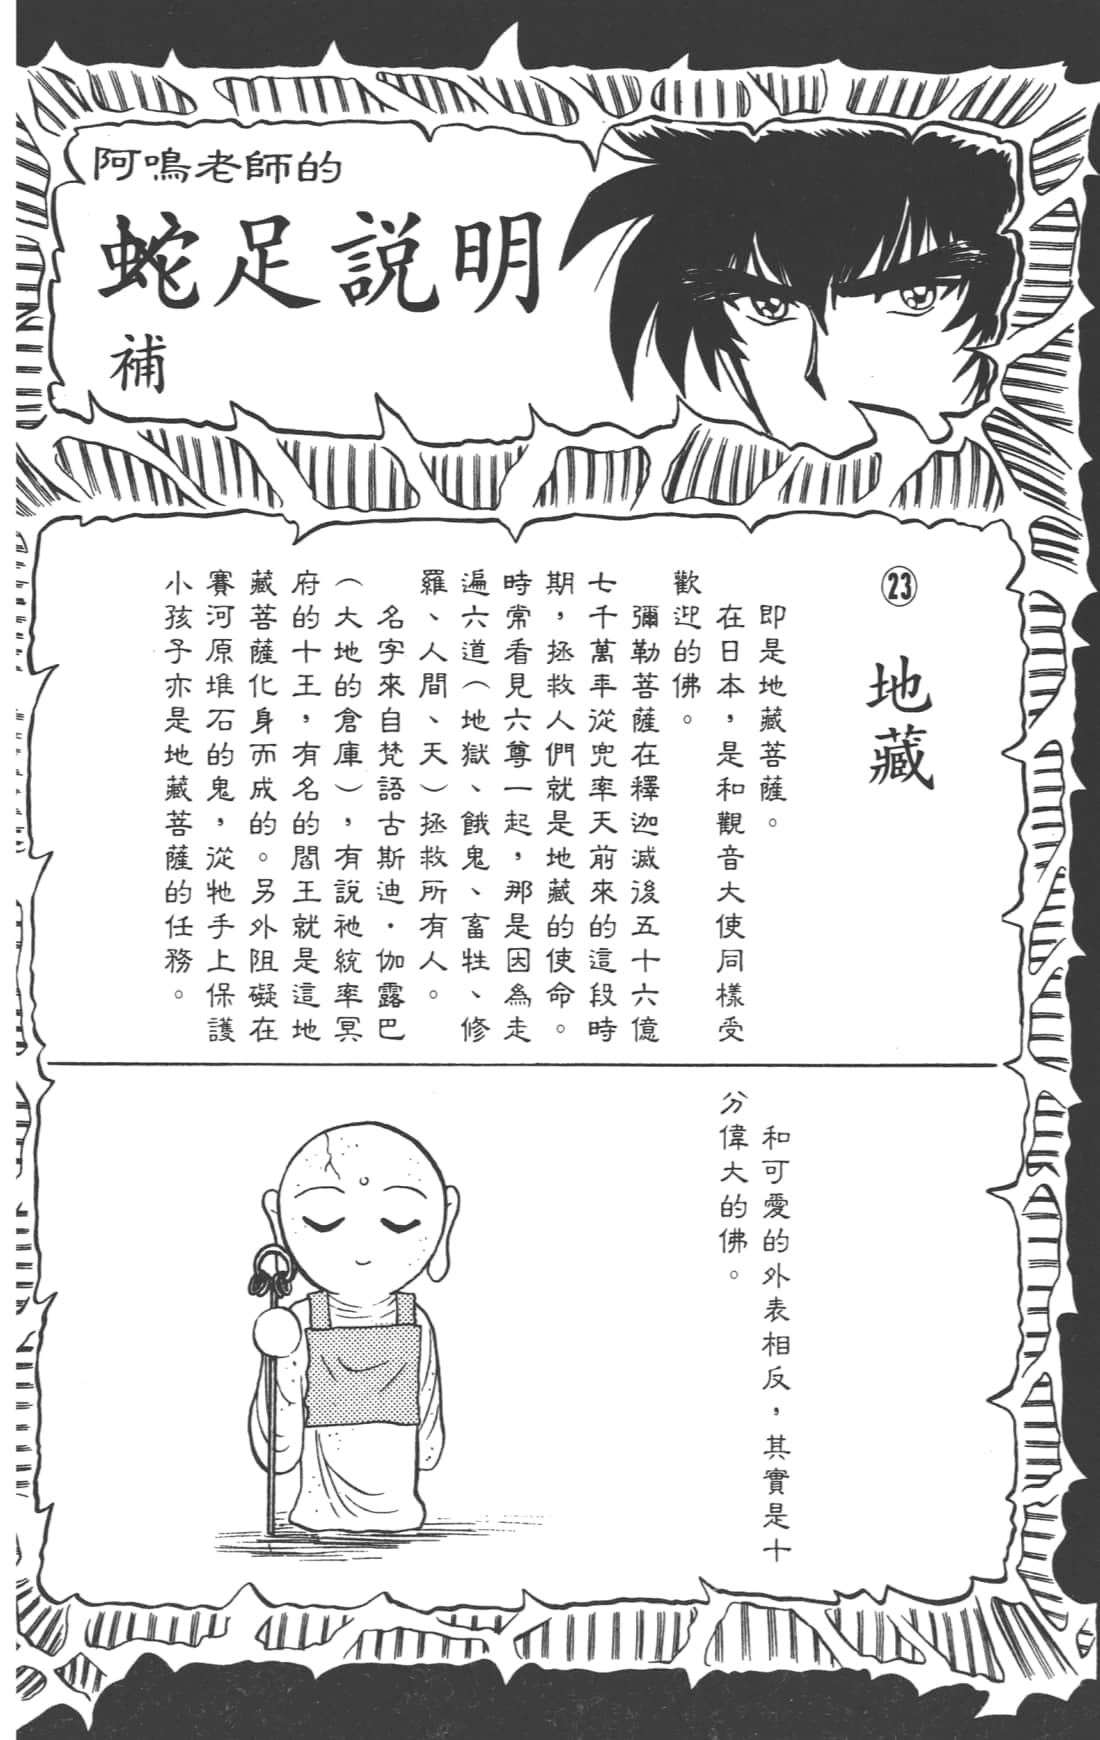 阿鳴老師的
蛇足説明
補
㉓ 地藏
即是地藏菩薩。
在日本，是和觀音大使同樣受
歡迎的佛。
彌勒菩薩在釋迦滅後五十六億
七千萬年從兜率天前來的這段時
期，拯救人們就是地藏的使命。
時常看見六尊一起，那是因為走
遍六道（地獄、餓鬼、畜牲、修
羅、人間、天）拯救所有人。
名字來自梵語古斯迪・伽露巴
（大地的倉庫），有說祂統率冥
府的十王，有名的閻王就是這地
藏菩薩化身而成的。另外阻礙在
賽河原堆石的鬼，從牠手上保護
小孩子亦是地藏菩薩的任務。
和可愛的外表相反，其實是十
分偉大的佛。